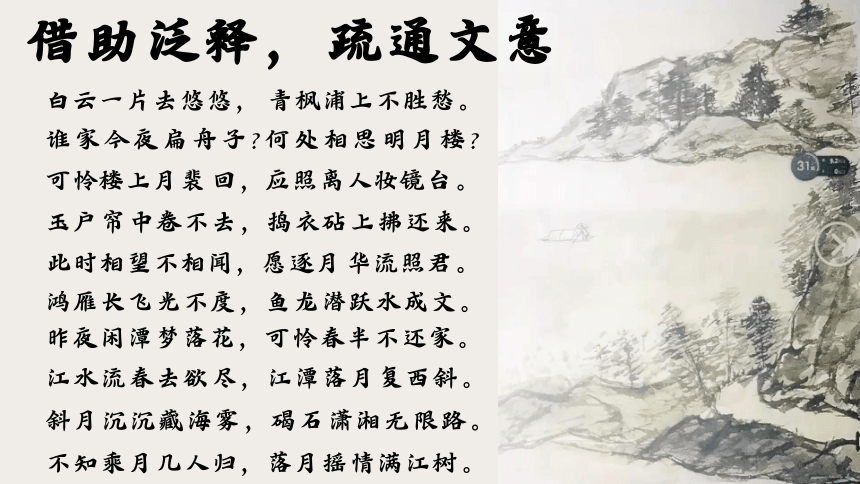 借助泛释，疏通文意
白云一片去悠悠，青枫浦上不胜愁。
谁家今夜扁舟子?何处相思明月楼?
可怜楼上月裴回，应照离人妆镜台。
玉户帘中卷不去，捣衣砧上拂还来。
此时相望不相闻，愿逐月华流照君。
鸿雁长飞光不度，鱼龙潜跃水成文。
昨夜闲潭梦落花，可怜春半不还家。
江水流春去欲尽，江潭落月复西斜。
斜月沉沉藏海雾，碣石潇湘无限路。
不知乘月几人归，落月摇情满江树。
31